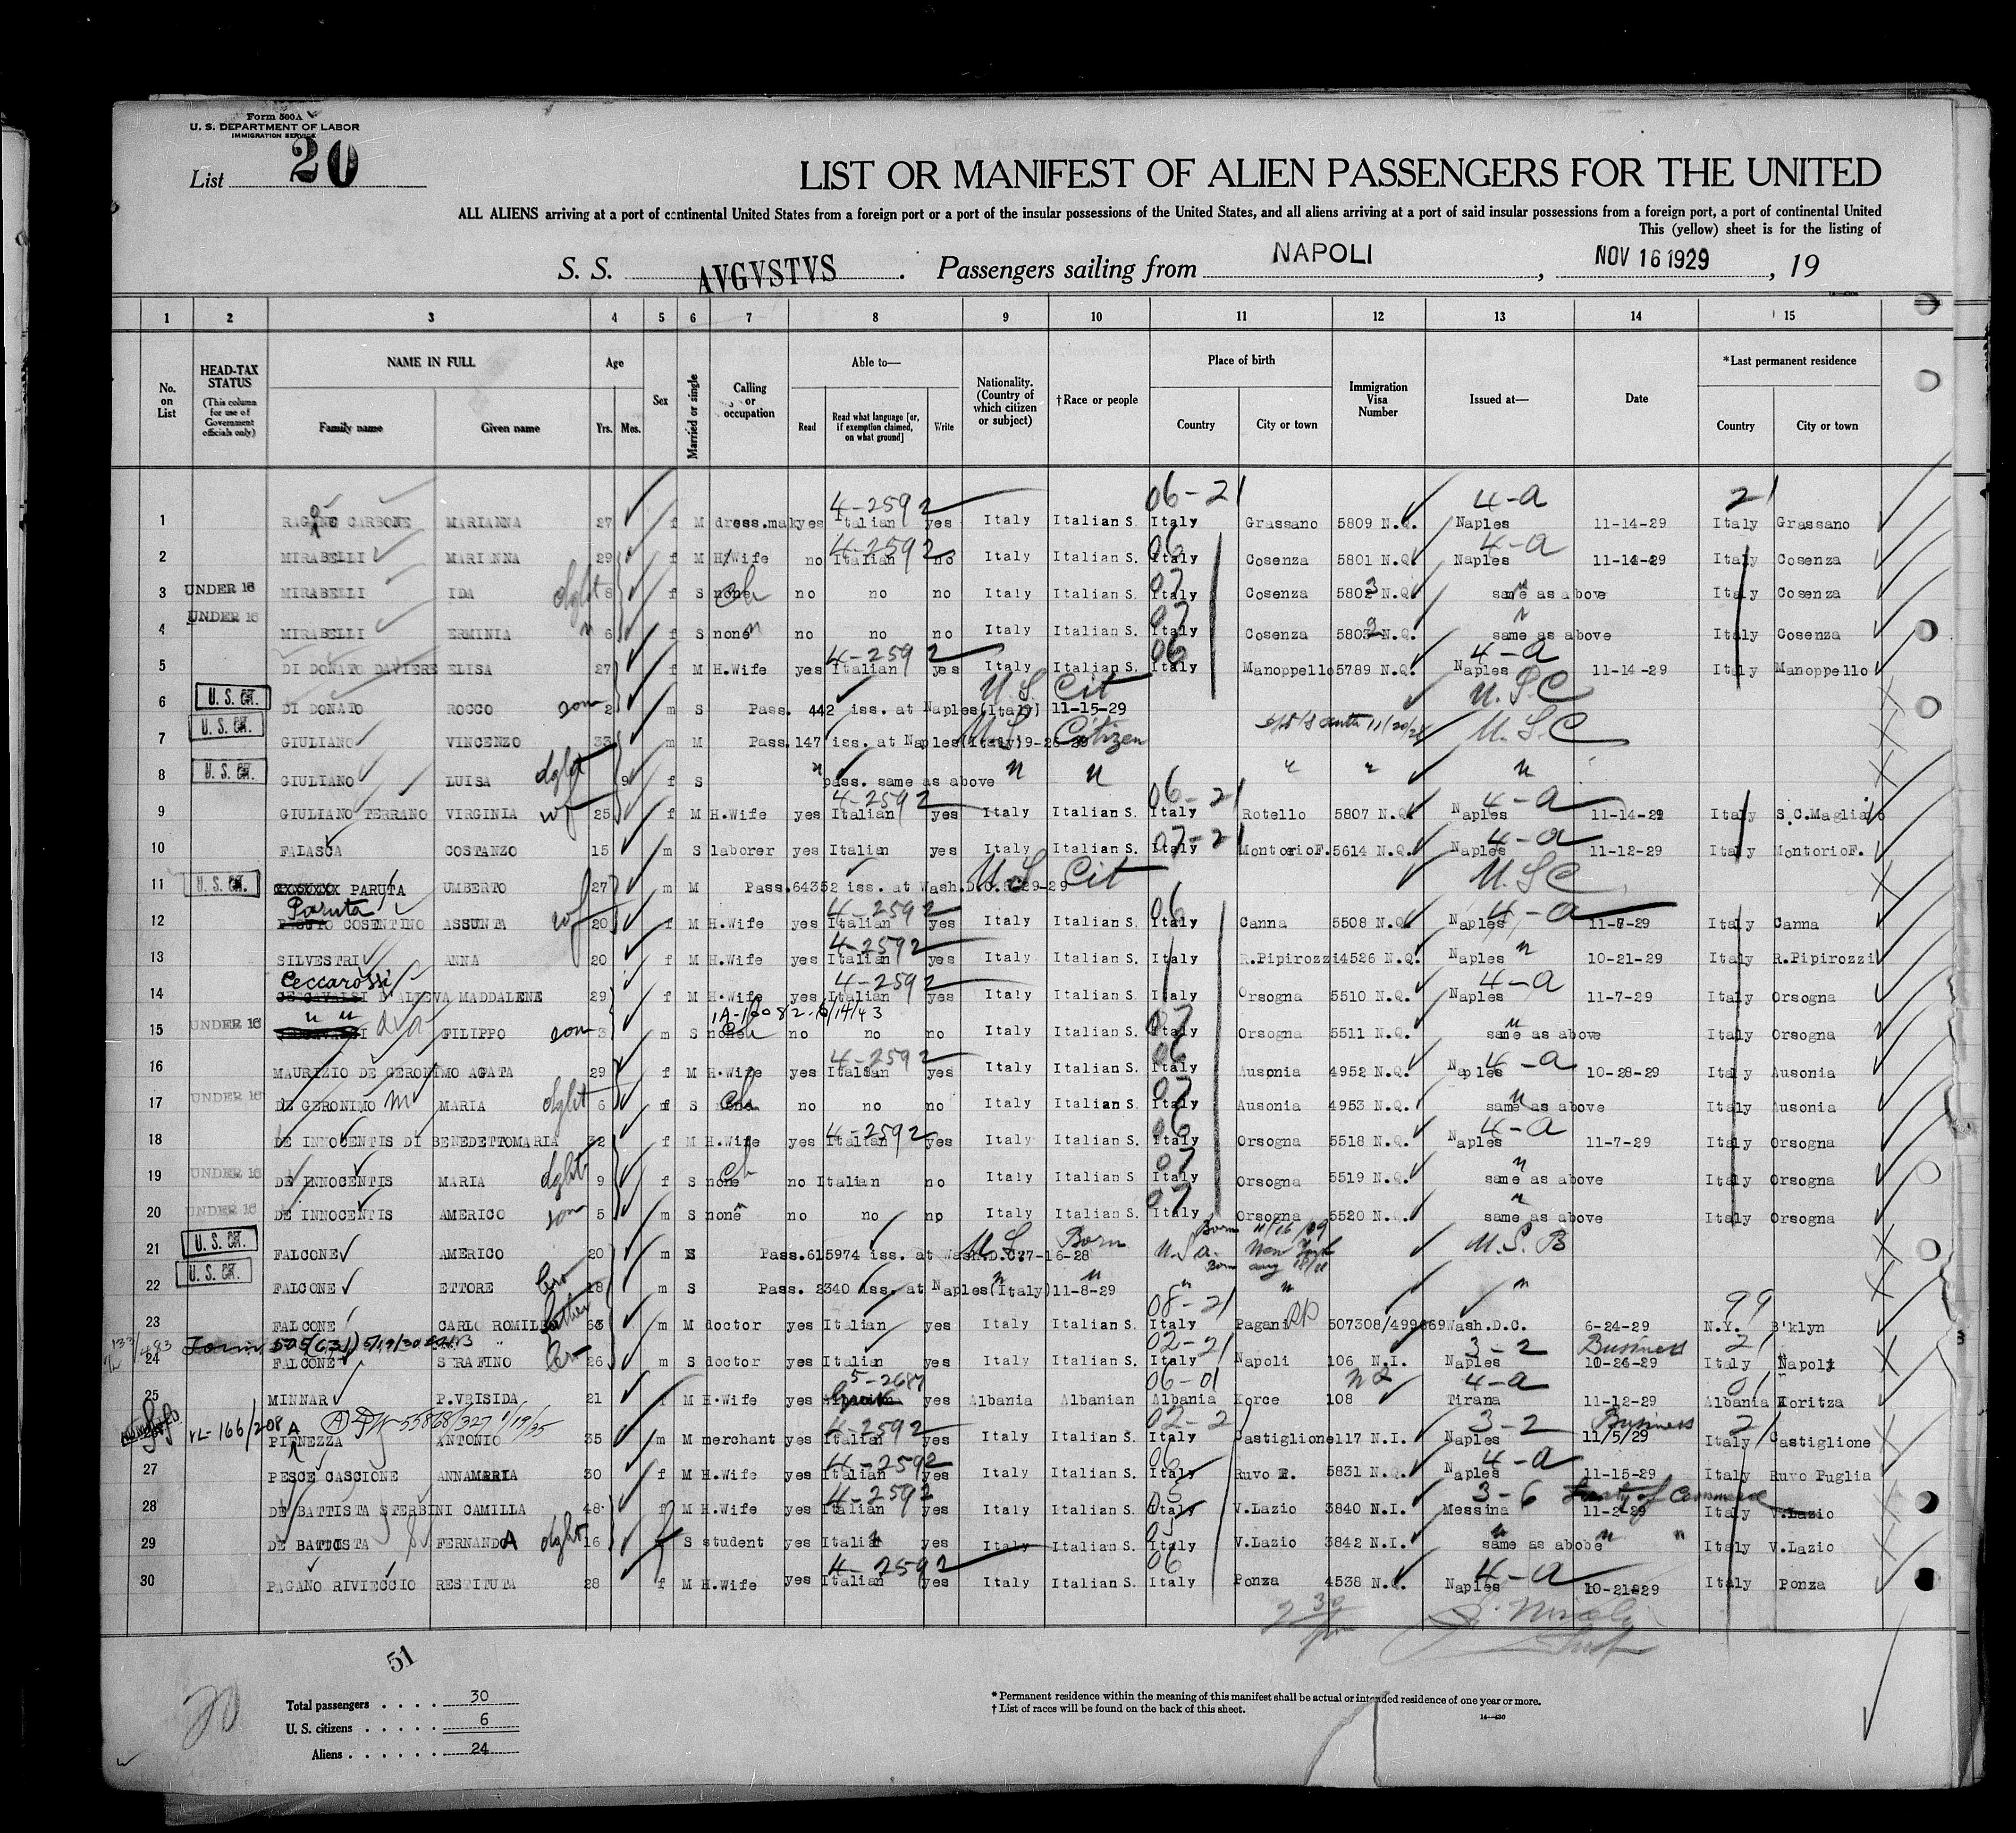 Form 500A
U. S. DEPARTMENT OF LABOR
IMMIGRATION SERVICE
List 20
LIST OR MANIFEST OF ALIEN PASSENGERS FOR THE UNITED
ALL ALIENS arriving at a port of continental United States from a foreign port or a port of the insular possessions of the United States, and all aliens arriving at a port of said insular possessions from a foreign port, a port of continental United
This (yellow) sheet is for the listing of
S. S. AVGVSTVS . Passengers sailing from NAPOLI , NOV 16 1929 , 19
1 2 3 4 5 6 7 8 9 10 11 12 13 14 15
No. on List HEAD-TAX STATUS (This column for use of Government officials only) NAME IN FULL Family name Given name Age Yrs. Mos. Sex Married or single Calling or occupation Able to— Read Read what language [or, if exemption claimed, on what ground] Write Nationality. (Country of which citizen or subject) †Race or people Place of birth Country City or town Immigration Visa Number Issued at— Date *Last permanent residence Country City or town
4-2592 06-21 4-a 21
1 RAGANO CARBONE MARIANNA 27 f M dress.mak yes Italian yes Italy Italian S. Italy Grassano 5809 N.Q. Naples 11-14-29 Italy Grassano
4-2592 06 4-a
2 MIRABELLI MARIANNA 29 f M H.Wife no Italian no Italy Italian S. Italy Cosenza 5801 N.Q. Naples 11-14-29 Italy Cosenza
3 UNDER 16 MIRABELLI IDA dght 8 f S none ch no no no Italy Italian S. 07 Italy Cosenza 5802 N.Q. same as above Italy Cosenza
4 UNDER 16 MIRABELLI ERMINIA " 6 f S none " no no no Italy Italian S. 07 Italy Cosenza 5803 N.Q. same as above Italy Cosenza
4-2592 06 4-a
5 DI DONATO DAVIERE ELISA 27 f M H.Wife yes Italian yes Italy Italian S. Italy Manoppello 5789 N.Q. Naples 11-14-29 Italy Manoppello
6 U. S. CIT. DI DONATO ROCCO son 2 m S Pass. 442 iss. at Naples(Italy) 11-15-29 U.S. Cit U.S.C
7 U. S. CIT. GIULIANO VINCENZO 33 m M Pass.147 iss. at Naples(Italy)9-26-29 U.S. Citizen U.S.C
8 U. S. CIT. GIULIANO LUISA dght 9 f S pass. same as above " " " " "
4-2592 06-21 4-a
9 GIULIANO TERRANO VIRGINIA wf 25 f M H.Wife yes Italian yes Italy Italian S. Italy Rotello 5807 N.Q. Naples 11-14-29 Italy S.C.Magliano
07-21 4-a
10 FALASCA COSTANZO 15 m S laborer yes Italian yes Italy Italian S. Italy MontorioF. 5614 N.Q. Naples 11-12-29 Italy MontorioF.
11 U. S. CIT. PARUTA UMBERTO 27 m M Pass.64352 iss. at Wash.D.C. 8-29-29 U.S. Cit U.S.C
Paruta 4-2592 06 4-a
12 COSENTINO ASSUNTA wf 20 f M H.Wife yes Italian yes Italy Italian S. Italy Canna 5508 N.Q. Naples 11-8-29 Italy Canna
4-2592 "
13 SILVESTRI ANNA 20 f M H.Wife yes Italian yes Italy Italian S. Italy R.Pipirozzi 4526 N.Q. Naples 10-21-29 Italy R.Pipirozzi
Ceccarossi 4-2592 4-a
14 D'ALIEVA MADDALENE 29 f M H.Wife yes Italian yes Italy Italian S. Italy Orsogna 5510 N.Q. Naples 11-7-29 Italy Orsogna
" "
15 UNDER 16 FILIPPO son 3 m S none ch no no no Italy Italian S. 07 Italy Orsogna 5511 N.Q. same as above Italy Orsogna
4-2592 06 4-a
16 MAURIZIO DE GERONIMO AGATA 29 f M H.Wife yes Italian yes Italy Italian S. Italy Ausonia 4952 N.Q. Naples 10-28-29 Italy Ausonia
17 UNDER 16 DE GERONIMO M MARIA dght 6 f S none ch no no no Italy Italian S. 07 Italy Ausonia 4953 N.Q. same as above Italy Ausonia
18 DE INNOCENTIS DI BENEDETTO MARIA 32 f M H.Wife yes 4-2592 Italian yes Italy Italian S. 06 Italy Orsogna 5518 N.Q. 4-a Naples 11-7-29 Italy Orsogna
19 UNDER 16 DE INNOCENTIS MARIA dght 9 f S none ch no Italian no Italy Italian S. 07 Italy Orsogna 5519 N.Q. same as above Italy Orsogna
20 UNDER 16 DE INNOCENTIS AMERICO son 5 m S none " no no no Italy Italian S. 07 Italy Orsogna 5520 N.Q. same as above Italy Orsogna
Born 11/16/09
21 U. S. CIT. FALCONE AMERICO 20 m S Pass.615974 iss. at Wash.D.C.7-16-28 U.S. Born U.S.a. New York U.S.B
22 U. S. CIT. FALCONE ETTORE bro 18 m S Pass. 2340 iss. at Naples(Italy)11-8-29 " " " " "
08-21 99
23 FALCONE CARLO ROMILIO father 63 m M doctor yes Italian yes Italy Italian S. Italy Pagani 507308/499869 Wash.D.C. 6-24-29 N.Y. B'klyn
02-21 3-2 Business 21
24 FALCONE SERAFINO bro 26 m S doctor yes Italian yes Italy Italian S. Italy Napoli 106 N.I. Naples 10-26-29 Italy Napoli
5-2687 06-01 4-a 01
25 MINNAR P.VRISIDA 21 f M H.Wife yes yes Albania Albanian Albania Korce 108 NQ Tirana 11-12-29 Albania Koritza
VL-166/208 4-2592 02-21 3-2 Business 21
PIGNEZZA ANTONIO 35 m M merchant yes Italian yes Italy Italian S. Italy Castiglione 117 N.I. Naples 11/5/29 Italy Castiglione
4-2592 06 4-a
27 PESCE CASCIONE ANNAMARIA 30 f M H.Wife yes Italian yes Italy Italian S. Italy Ruvo 5831 N.Q. Naples 11-15-29 Italy Ruvo Puglia
4-2592 05 3-6 Treaty of Commerce
28 DE BATTISTA STERBINI CAMILLA 48 f M H.Wife yes Italian yes Italy Italian S. Italy V.Lazio 3840 N.I. Messina 11-2-29 Italy V.Lazio
29 DE BATTISTA FERNANDA dght 16 f S student yes Italian yes Italy Italian S. 05 Italy V.Lazio 3842 N.I. same as abobe " " Italy V.Lazio
4-2592 06 4-a
30 PAGANO RIVIECCIO RESTITUTA 28 f M H.Wife yes Italian yes Italy Italian S. Italy Ponza 4538 N.Q. Naples 10-21-29 Italy Ponza
51
20
Total passengers . . . . 30
U. S. citizens . . . . . 6
Aliens . . . . . . 24
* Permanent residence within the meaning of this manifest shall be actual or intended residence of one year or more.
† List of races will be found on the back of this sheet.